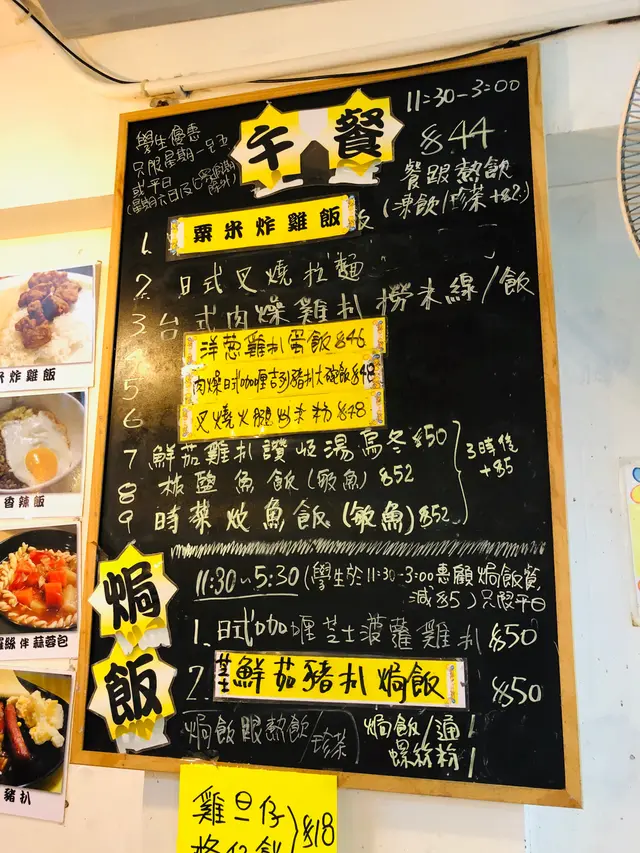 11:30-3:00
午餐
學生優惠
只限星期一至五
或平日
$44
餐跟熱飲
(凍飲/珍菜+$2)
1. 粟米炸雞飯
2. 日式叉燒拉麵
3 台式肉燥雞扒撈米線/飯
4 洋葱雞扒蛋飯$46
5 肉燥日式咖喱吉列豬扒大碗飯$48
6 叉燒火腿炒米粉$48
7 鮮茄雞扒讚岐湯烏冬$50
8 椒鹽魚飯(鯇魚)$52
9 時菜炆魚飯(鯇魚)$52
3時後
+$5
焗飯
11:30~5:30(學生於11:30-3:00惠顧焗飯餐
減$5)只限平日
1. 日式咖喱芝士菠蘿雞扒 $50
2. 芝士鮮茄豬扒焗飯 $50
焗飯跟熱飲/珍菜
焗飯/通
螺絲粉
雞旦仔
格仔餅
$18
米炸雞飯
香辣飯
羅絲伴蒜蓉包
豬扒